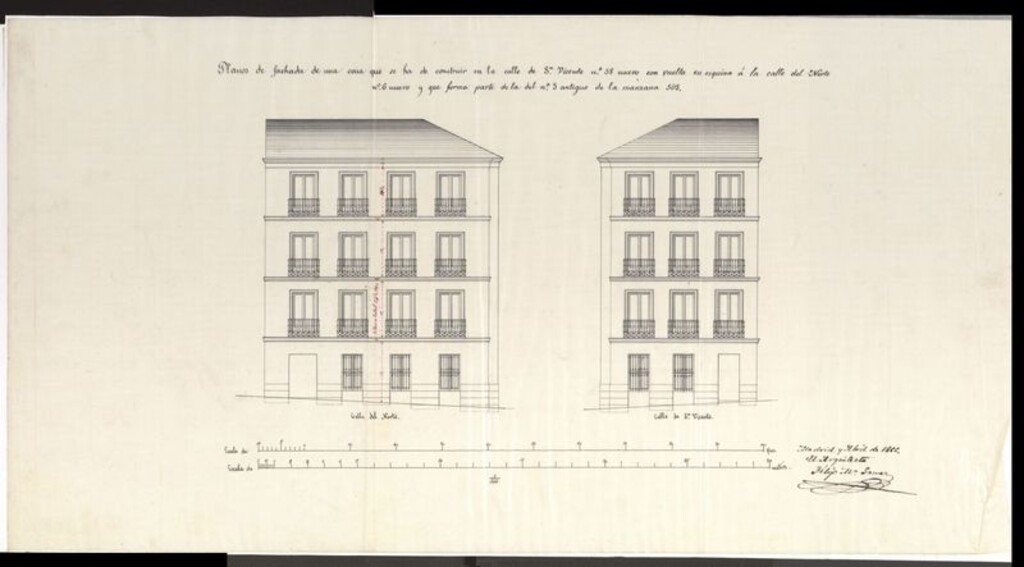 Planos de fachada de una casa que se ha de construir en la calle de Sn. Vicente n.º 58 nuevo con vuelta en esquina á la calle del Norte
nº 6 nuevo y que forma parte de la del n.º 3 antiguo de la manzana 502.
Calle del Norte.
Calle de Sn. Vicente.
Escala de
pies
Escala de
metros.
Madrid y Abril de
El Arquitecto